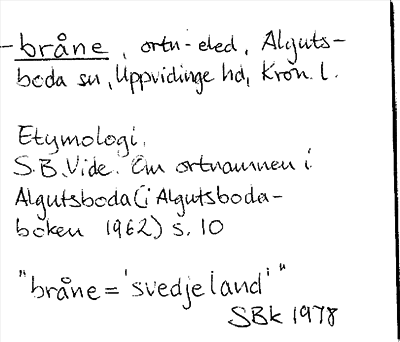 -bråne, ortn-eled, Alguts-
boda sn, Uppvidinge hd, Kron. l.
Etymologi.
S.B.Vide. Om ortnamnen i
Algutsboda (i Algutsboda-
boken 1962) s. 10
"bråne = 'svedjeland'"
SBk 1978